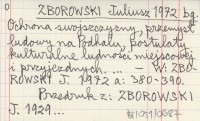 0
ZBOROWSKI Juliusz 1972 bg.
Ochrona swojszczyzny, przemysł
ludowy na Podhalu, postulaty
kulturalne ludności miejscowej
i przyjezdnych. ... W: ZBO-
ROWSKI J. 1972 a: 380-390.
Przedruk z: ZBOROWSKI
J. 1929...